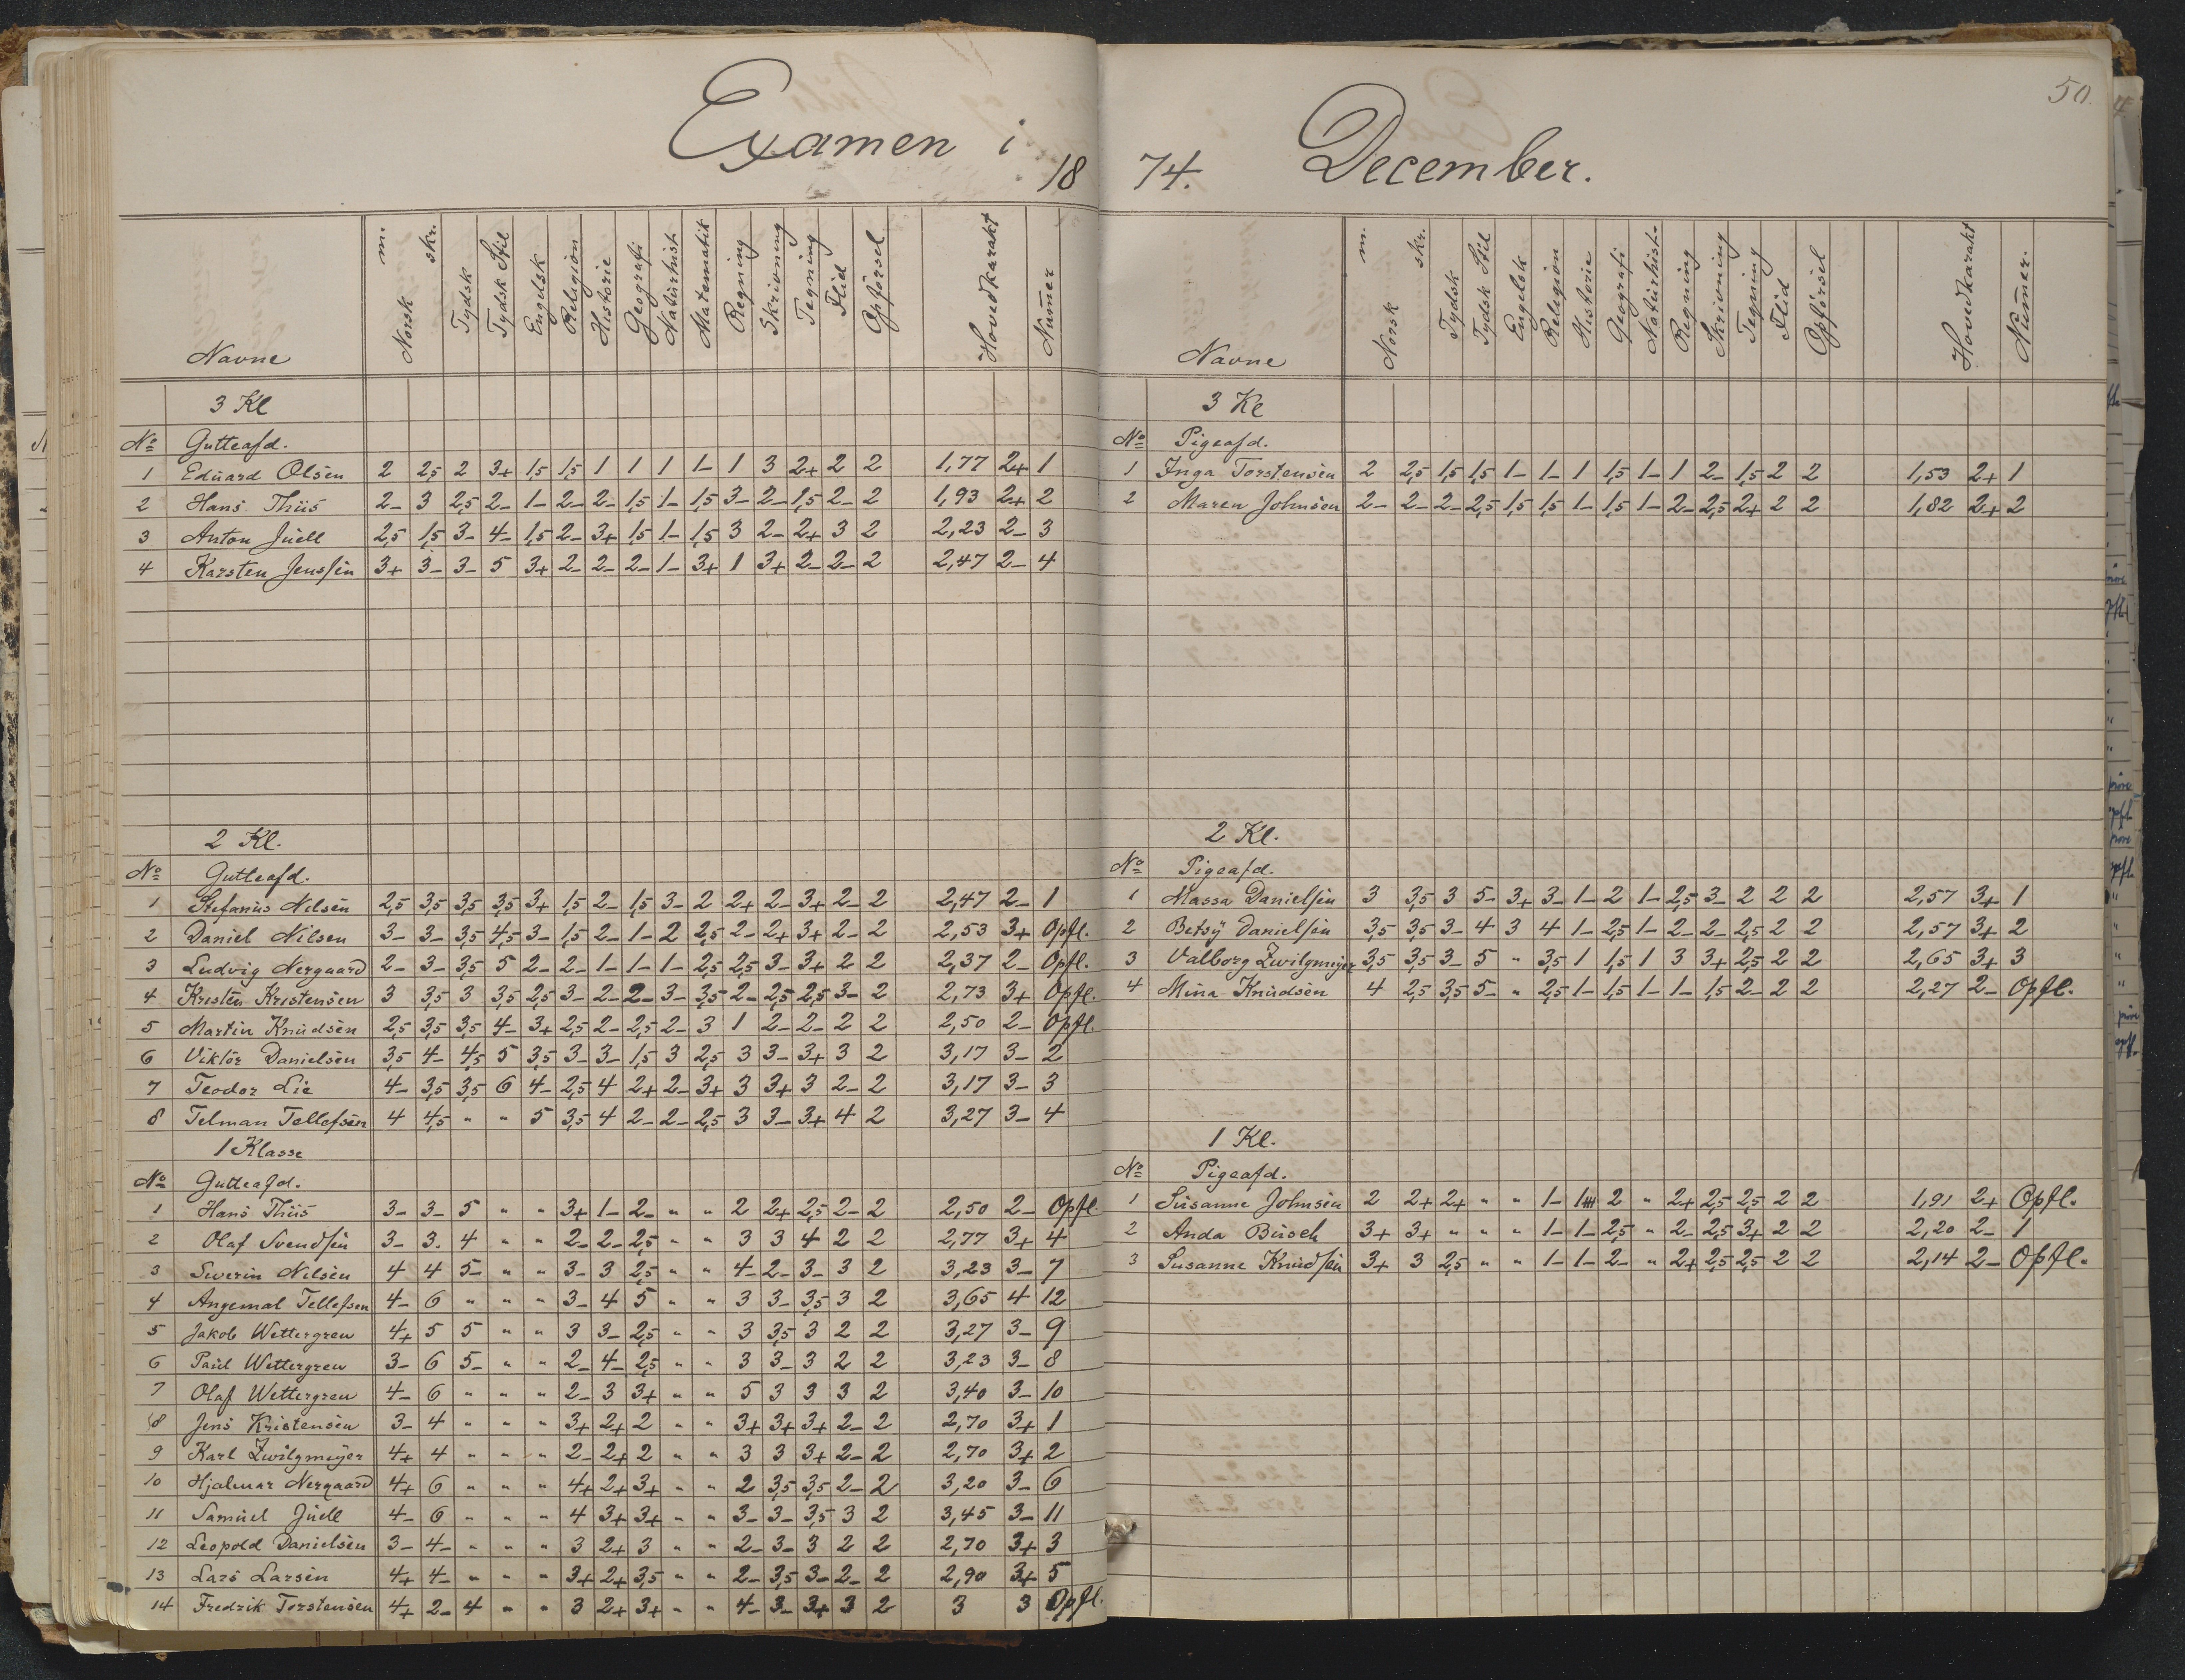 Examen i
18
Navne Norsk m. skr. Tydsk Tydsk Stil Engelsk Religion Historie Geografi Naturhist. Matematik Regning Skrivning Tegning Flid Opførsel Hovedkarakt Nummer
3 Kl
No Gutteafd.
1 Eduard Olsen 2 2,5 2 3+ 1,5 1,5 1 1 1 1- 1 3 2+ 2 2 1,77 2+ 1
2 Hans Thiis 2- 3 2,5 2- 1- 2- 2- 1,5 1- 1,5 3- 2- 1,5 2- 2 1,93 2+ 2
3 Anton Juell 2,5 1,5 3- 4- 1,5 2- 3+ 1,5 1- 1,5 3 2- 2+ 3 2 2,23 2- 3
4 Karsten Jenssen 3+ 3- 3- 5 3+ 2- 2- 2- 1- 3+ 1 3+ 2- 2- 2 2,47 2- 4
2 Kl.
No Gutteafd.
1 Stefanus Nilsen 2,5 3,5 3,5 3,5 3+ 1,5 2- 1,5 3- 2 2+ 2- 3+ 2- 2 2,47 2- 1
2 Daniel Nilsen 3- 3- 3,5 4,5 3- 1,5 2- 1- 2 2,5 2- 2+ 3+ 2- 2 2,53 3+ Opfl.
3 Ludvig Nergaard 2- 3- 3,5 5 2- 2- 1- 1- 1- 2,5 2,5 3- 3+ 2 2 2,37 2- Opfl.
4 Kristen Kristensen 3 3,5 3 3,5 2,5 3- 2- 2- 3- 3,5 2- 2,5 2,5 3- 2 2,73 3+ Opfl.
5 Martin Knudsen 2,5 3,5 3,5 4- 3+ 2,5 2- 2,5 2- 3 1 2- 2- 2 2 2,50 2- Opfl.
6 Viktor Danielsen 3,5 4- 4,5 5 3,5 3- 3- 1,5 3 2,5 3 3- 3+ 3 2 3,17 3- 2
7 Teodor Lie 4- 3,5 3,5 6 4- 2,5 4 2+ 2- 3+ 3 3+ 3 2- 2 3,17 3- 3
8 Telman Tellefsen 4 4,5 " " 5 3,5 4 2- 2- 2,5 3 3- 3+ 4 2 3,27 3- 4
1 Klasse
No Gutteafd.
1 Hans Thiis 3- 3- 5 " " 3+ 1- 2- " " 2 2+ 2,5 2- 2 2,50 2- Opfl.
2 Olaf Svendsen 3- 3. 4 " " 2- 2- 2,5 " " 3 3 4 2 2 2,77 3+ 4
3 Severin Nilsen 4 4 5- " " 3- 3 2,5 " " 4- 2- 3- 3 2 3,23 3- 7
4 Angemal Tellefsen 4- 6 " " " 3- 4 5 " " 3 3- 3,5 3 2 3,65 4 12
5 Jakob Wettergren 4+ 5 5 " " 3 3- 2,5 " " 3 3,5 3 2 2 3,27 3- 9
6 Paul Wettergren 3- 6 5- " " 2- 4- 2,5 " " 3 3- 3 2 2 3,23 3- 8
7 Olaf Wettergren 4- 6 " " " 2- 3 3+ " " 5 3 3 3 2 3,40 3- 10
8 Jens Kristensen 3- 4 " " " 3+ 2+ 2 " " 3+ 3+ 3+ 2- 2 2,70 3+ 1
9 Karl Zwilgmeyer 4+ 4 " " " 2- 2+ 2 " " 3 3 3+ 2- 2 2,70 3+ 2
10 Hjalmar Nergaard 4+ 6 " " " 4+ 2+ 3+ " " 2 3,5 3,5 2- 2 3,20 3- 6
11 Samuel Juell 4- 6 " " " 4 3+ 3+ " " 3- 3- 3,5 3 2 3,45 3- 11
12 Leopold Danielsen 3- 4- " " " 3 2+ 3 " " 2- 3- 3 2 2 2,70 3+ 3
13 Lars Larsen 4+ 4- " " " 3+ 2+ 3,5 " " 2- 3,5 3- 2- 2 2,90 3+ 5
14 Fredrik Torstensen 4+ 2- 4 " " 3 2+ 3+ " " 4- 3- 3+ 3 2 3 3 Opfl.
50.
74. December.
Navne Norsk m. skr. Tydsk Tydsk Stil Engelsk Religion Historie Geografi Naturhist. Regning Skrivning Tegning Flid Opførsel Hovedkarakt Nummer.
3 Kl
No Pigeafd.
1 Inga Torstensen 2 2,5 1,5 1,5 1- 1- 1 1,5 1- 1 2- 1,5 2 2 1,53 2+ 1
2 Maren Johnsen 2- 2- 2- 2,5 1,5 1,5 1- 1,5 1- 2- 2,5 2+ 2 2 1,82 2+ 2
2 Kl.
No Pigeafd.
1 Massa Danielsen 3 3,5 3 5- 3+ 3- 1- 2 1- 2,5 3- 2 2 2 2,57 3+ 1
2 Betsy Danielsen 3,5 3,5 3- 4 3 4 1- 2,5 1- 2- 2- 2,5 2 2 2,57 3+ 2
3 Valborg Zwilgmeyer 3,5 3,5 3- 5 " 3,5 1 1,5 1 3 3+ 2,5 2 2 2,65 3+ 3
4 Mina Knudsen 4 2,5 3,5 5- " 2,5 1- 1,5 1- 1- 1,5 2- 2 2 2,27 2- Opfl.
1 Kl.
No Pigeafd.
1 Susanne Johnsen 2 2+ 2+ " " 1- 2 " 2+ 2,5 2,5 2 2 1,91 2+ Opfl.
2 Anda Busch 3+ 3+ " " " 1- 1- 2,5 " 2- 2,5 3+ 2 2 2,20 2- 1
3 Susanne Knudsen 3+ 3 2,5 " " 1- 1- 2- " 2+ 2,5 2,5 2 2 2,14 2- Opfl.